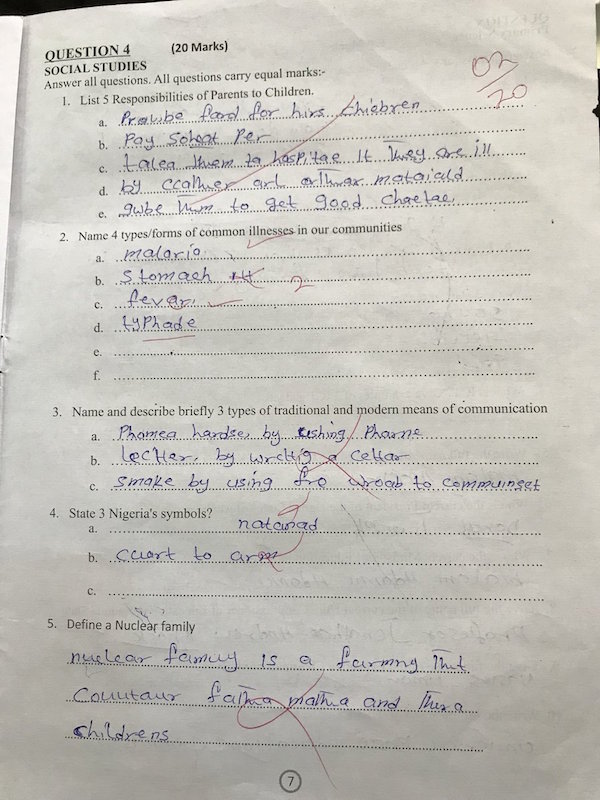 QUESTION 4 (20 Marks)
SOCIAL STUDIES
Answer all questions. All questions carry equal marks:-
02/20
1. List 5 Responsibilities of Parents to Children.
a. food for hirs Chiebren
b. Pay School Per
c. talea them to hospitae It They are ill
d. by ccalher art
e. gwbe him to get good Chaetae
2. Name 4 types/forms of common illnesses in our communities
a. malaria
b. Stomach
2
c. fevar
d. tyPhade
e.
f.
3. Name and describe briefly 3 types of traditional and modern means of communication
a. Phomea by ushing Pharne
b. by a
c. Smake by using fro to
4. State 3 Nigeria's symbols?
a. natanad
b. cuart to arm
c.
5. Define a Nuclear family
nuclear famuy is a That
fatha matha and
childrens
7